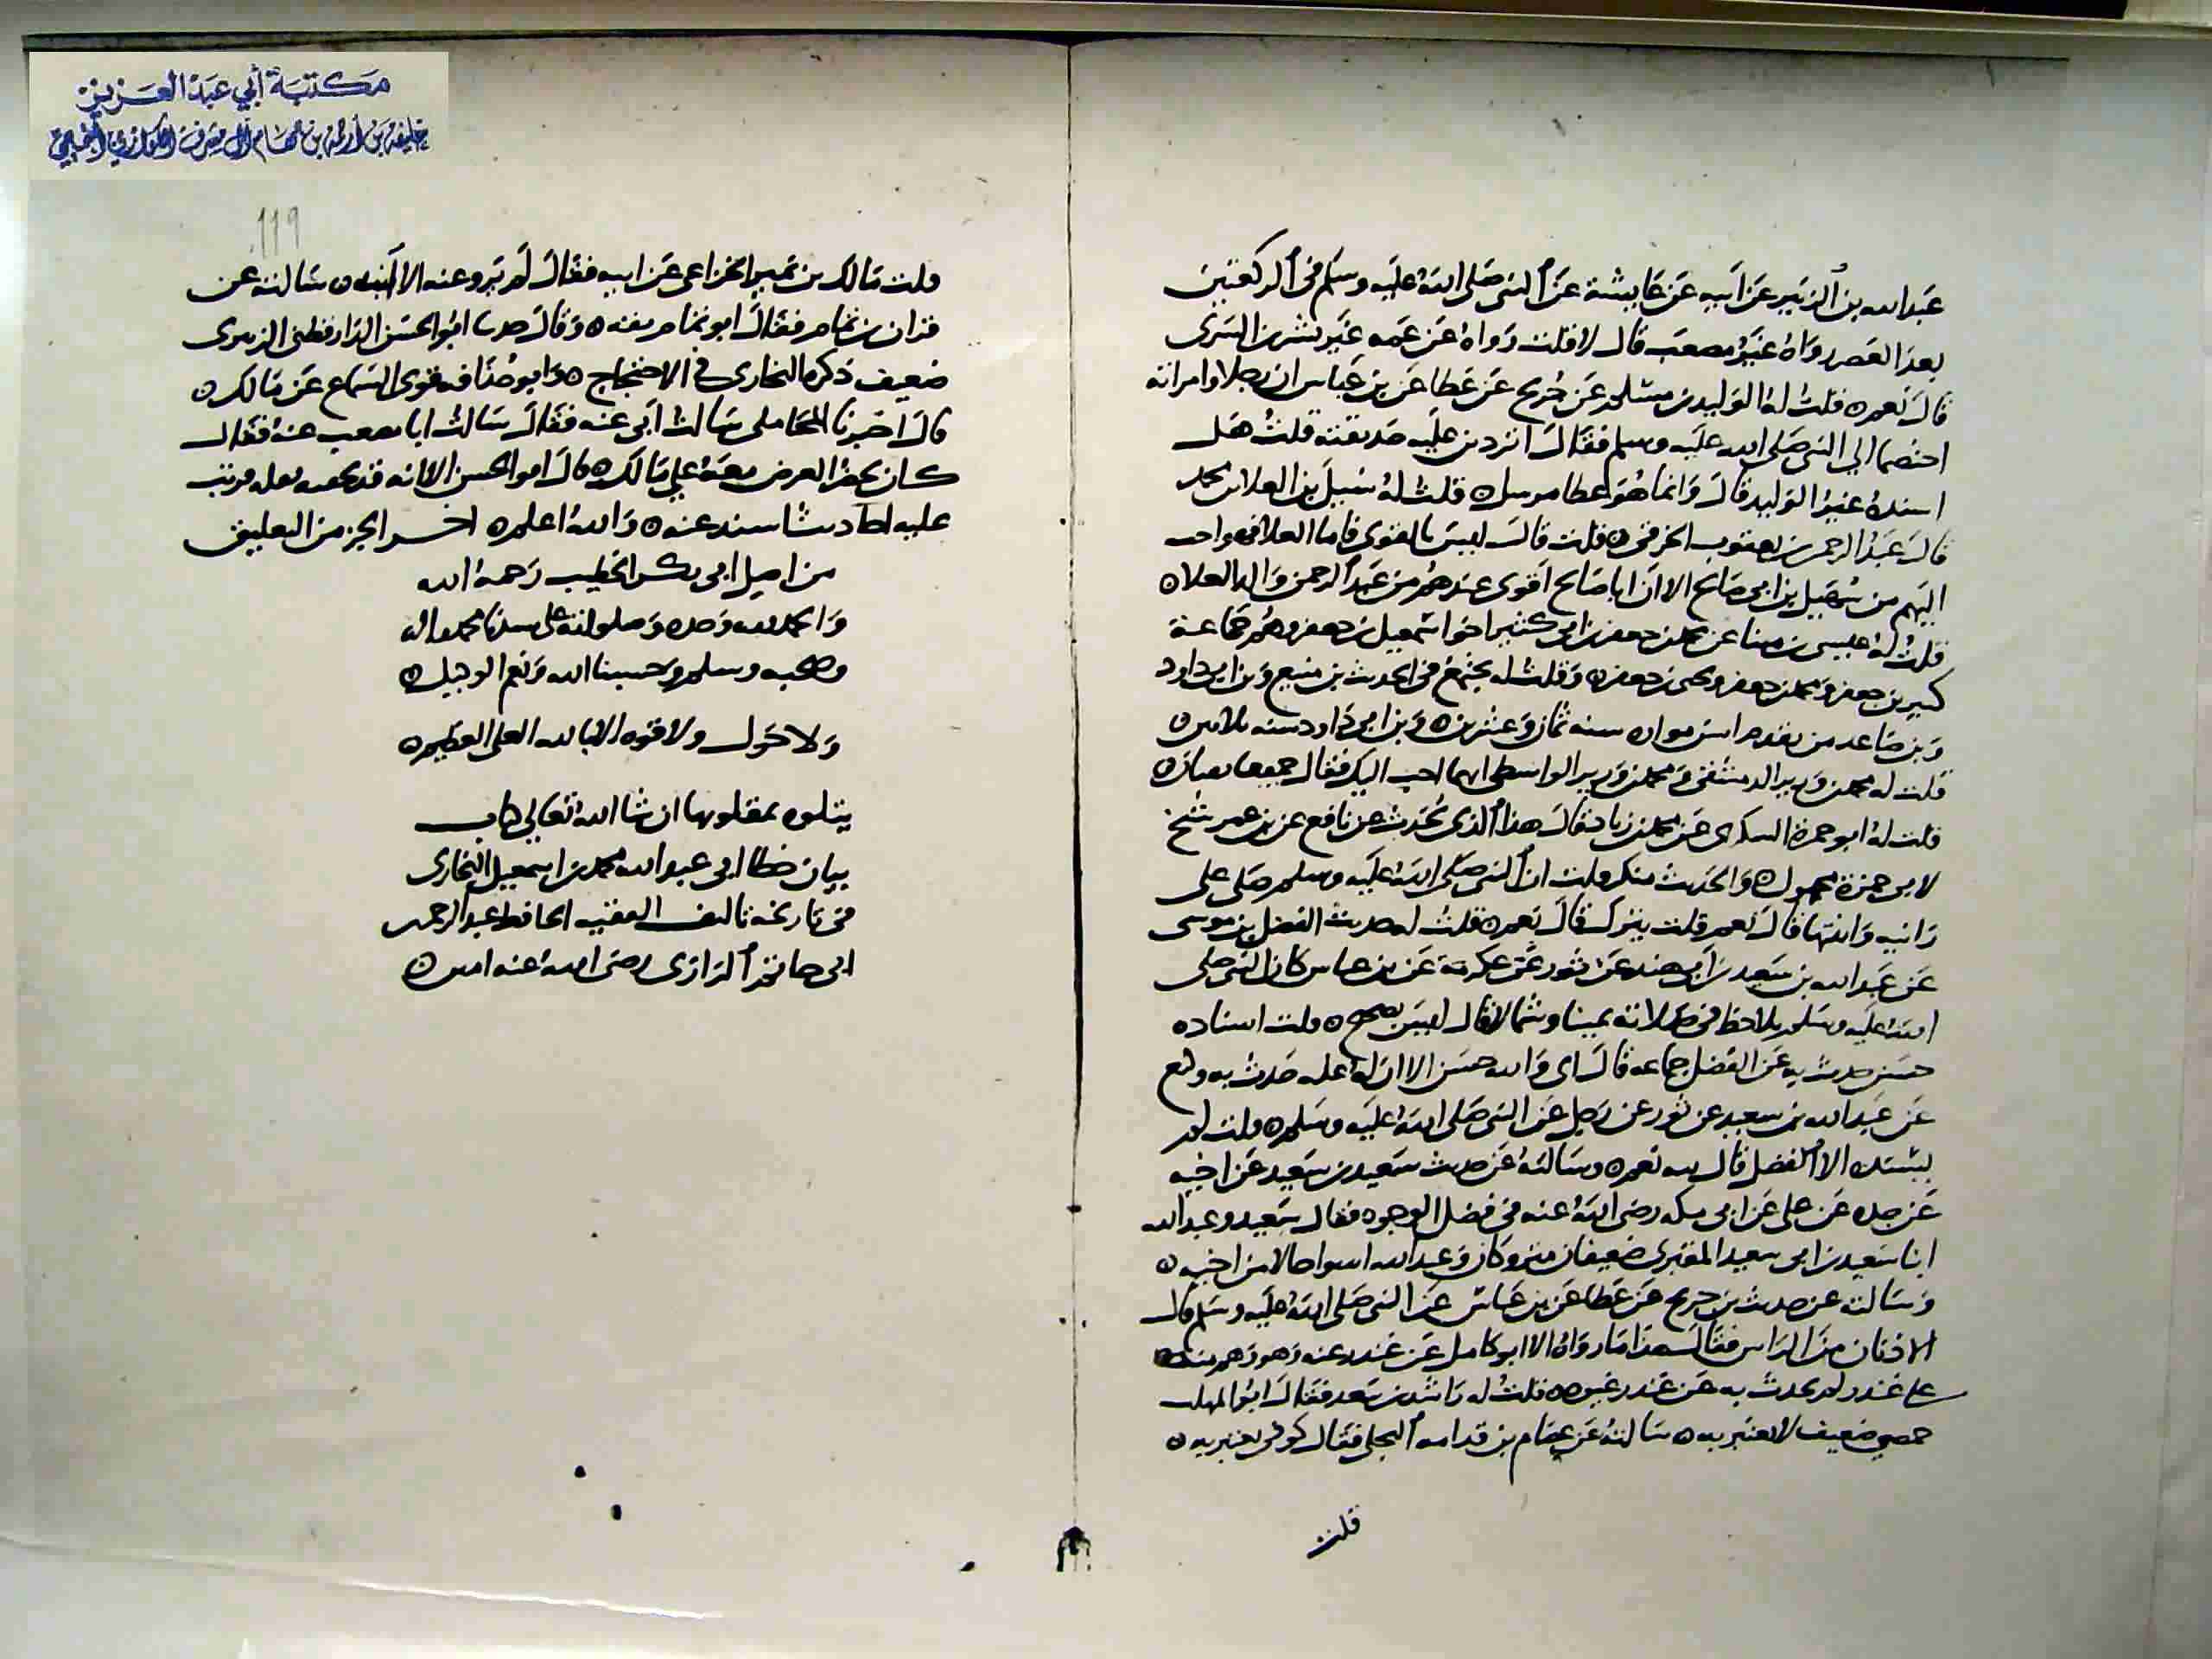 عبد الله بن الزبير عن ابيه عن عايشة عن النبي صلى الله عليه وسلم في الركعتين
بعد العصر رواه غير مصعب قال لا قلت رواه عن عمه غير بشر بن السري
قال نعم ه قلت له الوليد بن مسلم عن جريج عن عطا عن بن عباس ان رجلا وامراته
اختصما الي النبي صلى الله عليه وسلم فقال اتردين عليه حديقته قلت هل
اسنده غير الوليد قال وانما هو عطا مرسل ه قلت له شبل بن العلا بن
قال عبد الرحمن بن يعقوب الحرقي ه قلت قال ليس بالقوي فاما العلا فهو احب
اليهم من سهيل بن ابي صالح الا ان ابا صالح اقوى عندهم من عبد الرحمن والد العلا ه
قلت له عيسى بن مينا عن محمد بن جعفر بن ابي كثير اخو اسمعيل بن جعفر وهم جماعة
كثير بن جعفر ومحمد بن جعفر ويحيى بن جعفر ه وقلت له يجتمع في الحديث بن منيع وبن ابي داود
وبن صاعد من يقدم سنه ثمان وعشرين ه وبن ابي داود سنه ثلاثين ه
قلت له محمد بن وزير الدمشقي ومحمد بن وزير الواسطي ايهما احب اليك فقال جميعا ثقتان ه
قلت له ابو حمزة السكري عن محمد بن زياد فقال هذا الذي يحدث عن نافع عن بن عمر شيخ
لابي حمزة مجهول ه والحديث منكر قلت ان النبي صلى الله عليه وسلم صلى على
زانيه وابنتها قال نعم قلت يترك قال نعم ه قلت له حديث الفضل بن موسى
عن عبد الله بن سعيد بن ابي هند عن ثور عن عكرمة عن بن عباس كان النبي صلى
الله عليه وسلم يلاحظ في صلاته يمينا وشمالا قال ليس بصحيح ه قلت اسناده
حسن حدث به عن الفضل جماعه قال اي والله حسن الا ان له عله حدث به وكيع
عن عبد الله بن سعيد عن ثور عن رجل عن النبي صلى الله عليه وسلم ه قلت لم
يسنده الا الفضل قال نعم ه وسالته عن حديث سعيد بن سعيد عن اخيه
عن جده عن علي عن ابي بكر رضي الله عنه في فضل الوجوه فقال سعيد وعبد الله
ابنا سعيد بن ابي سعيد المقبري ضعيفان متروكان وعبد الله اسوا حالا من اخيه ه
وسالته عن حديث بن جريج عن عطا عن بن عباس عن النبي صلى الله عليه وسلم قال
الاذنان من الراس فقال هذا ما رواه الا ابو كامل عن غندر عنه وهو وهم منه
على غندر لم يحدث به عن غندر غيره ه قلت له راشد بن سعد فقال ابو المهلب
حمصي ضعيف لا يعتبر به ه سالته عن عصام بن قدامه البجلي فقال كوفي يعتبر به ه
قلت
119
قلت مالك بن نمير الخزاعي عن ابيه فقال لم يرو عنه الا ابنه ه سالته عن
قران بن تمام فقال ابو تمام ثقه ه وقال حدثنا ابو الحسن الدارقطني
ضعيف ذكره البخاري في الاحتجاج ه وابو حذافه قوي السماع عن مالك ه
قال اخبرنا المحاملي سالت ابي عنه فقال سالت ابا مصعب عنه فقال
كان يحضر العرض معنا علي مالك ه قال ابو الحسن الا انه قد لحقه
عليه احاديث اسند عنه ه والله اعلم ه اخر الجز من التعليق
من اصل ابي بكر الخطيب رحمه الله
والحمد لله وحده وصلواته على سيدنا محمد واله
وصحبه وسلم وحسبنا الله ونعم الوكيل ه
ولا حول ولا قوه الا بالله العلى العظيم ه
يتلوه بمقلوبها ان شا الله تعالي كتاب
بيان خطا ابي عبد الله محمد بن اسمعيل البخاري
في تاريخه تاليف الفقيه الحافظ عبد الرحمن
ابي حاتم الرازي رضي الله عنه امين ه
مكتبة أبي عبد العزيز